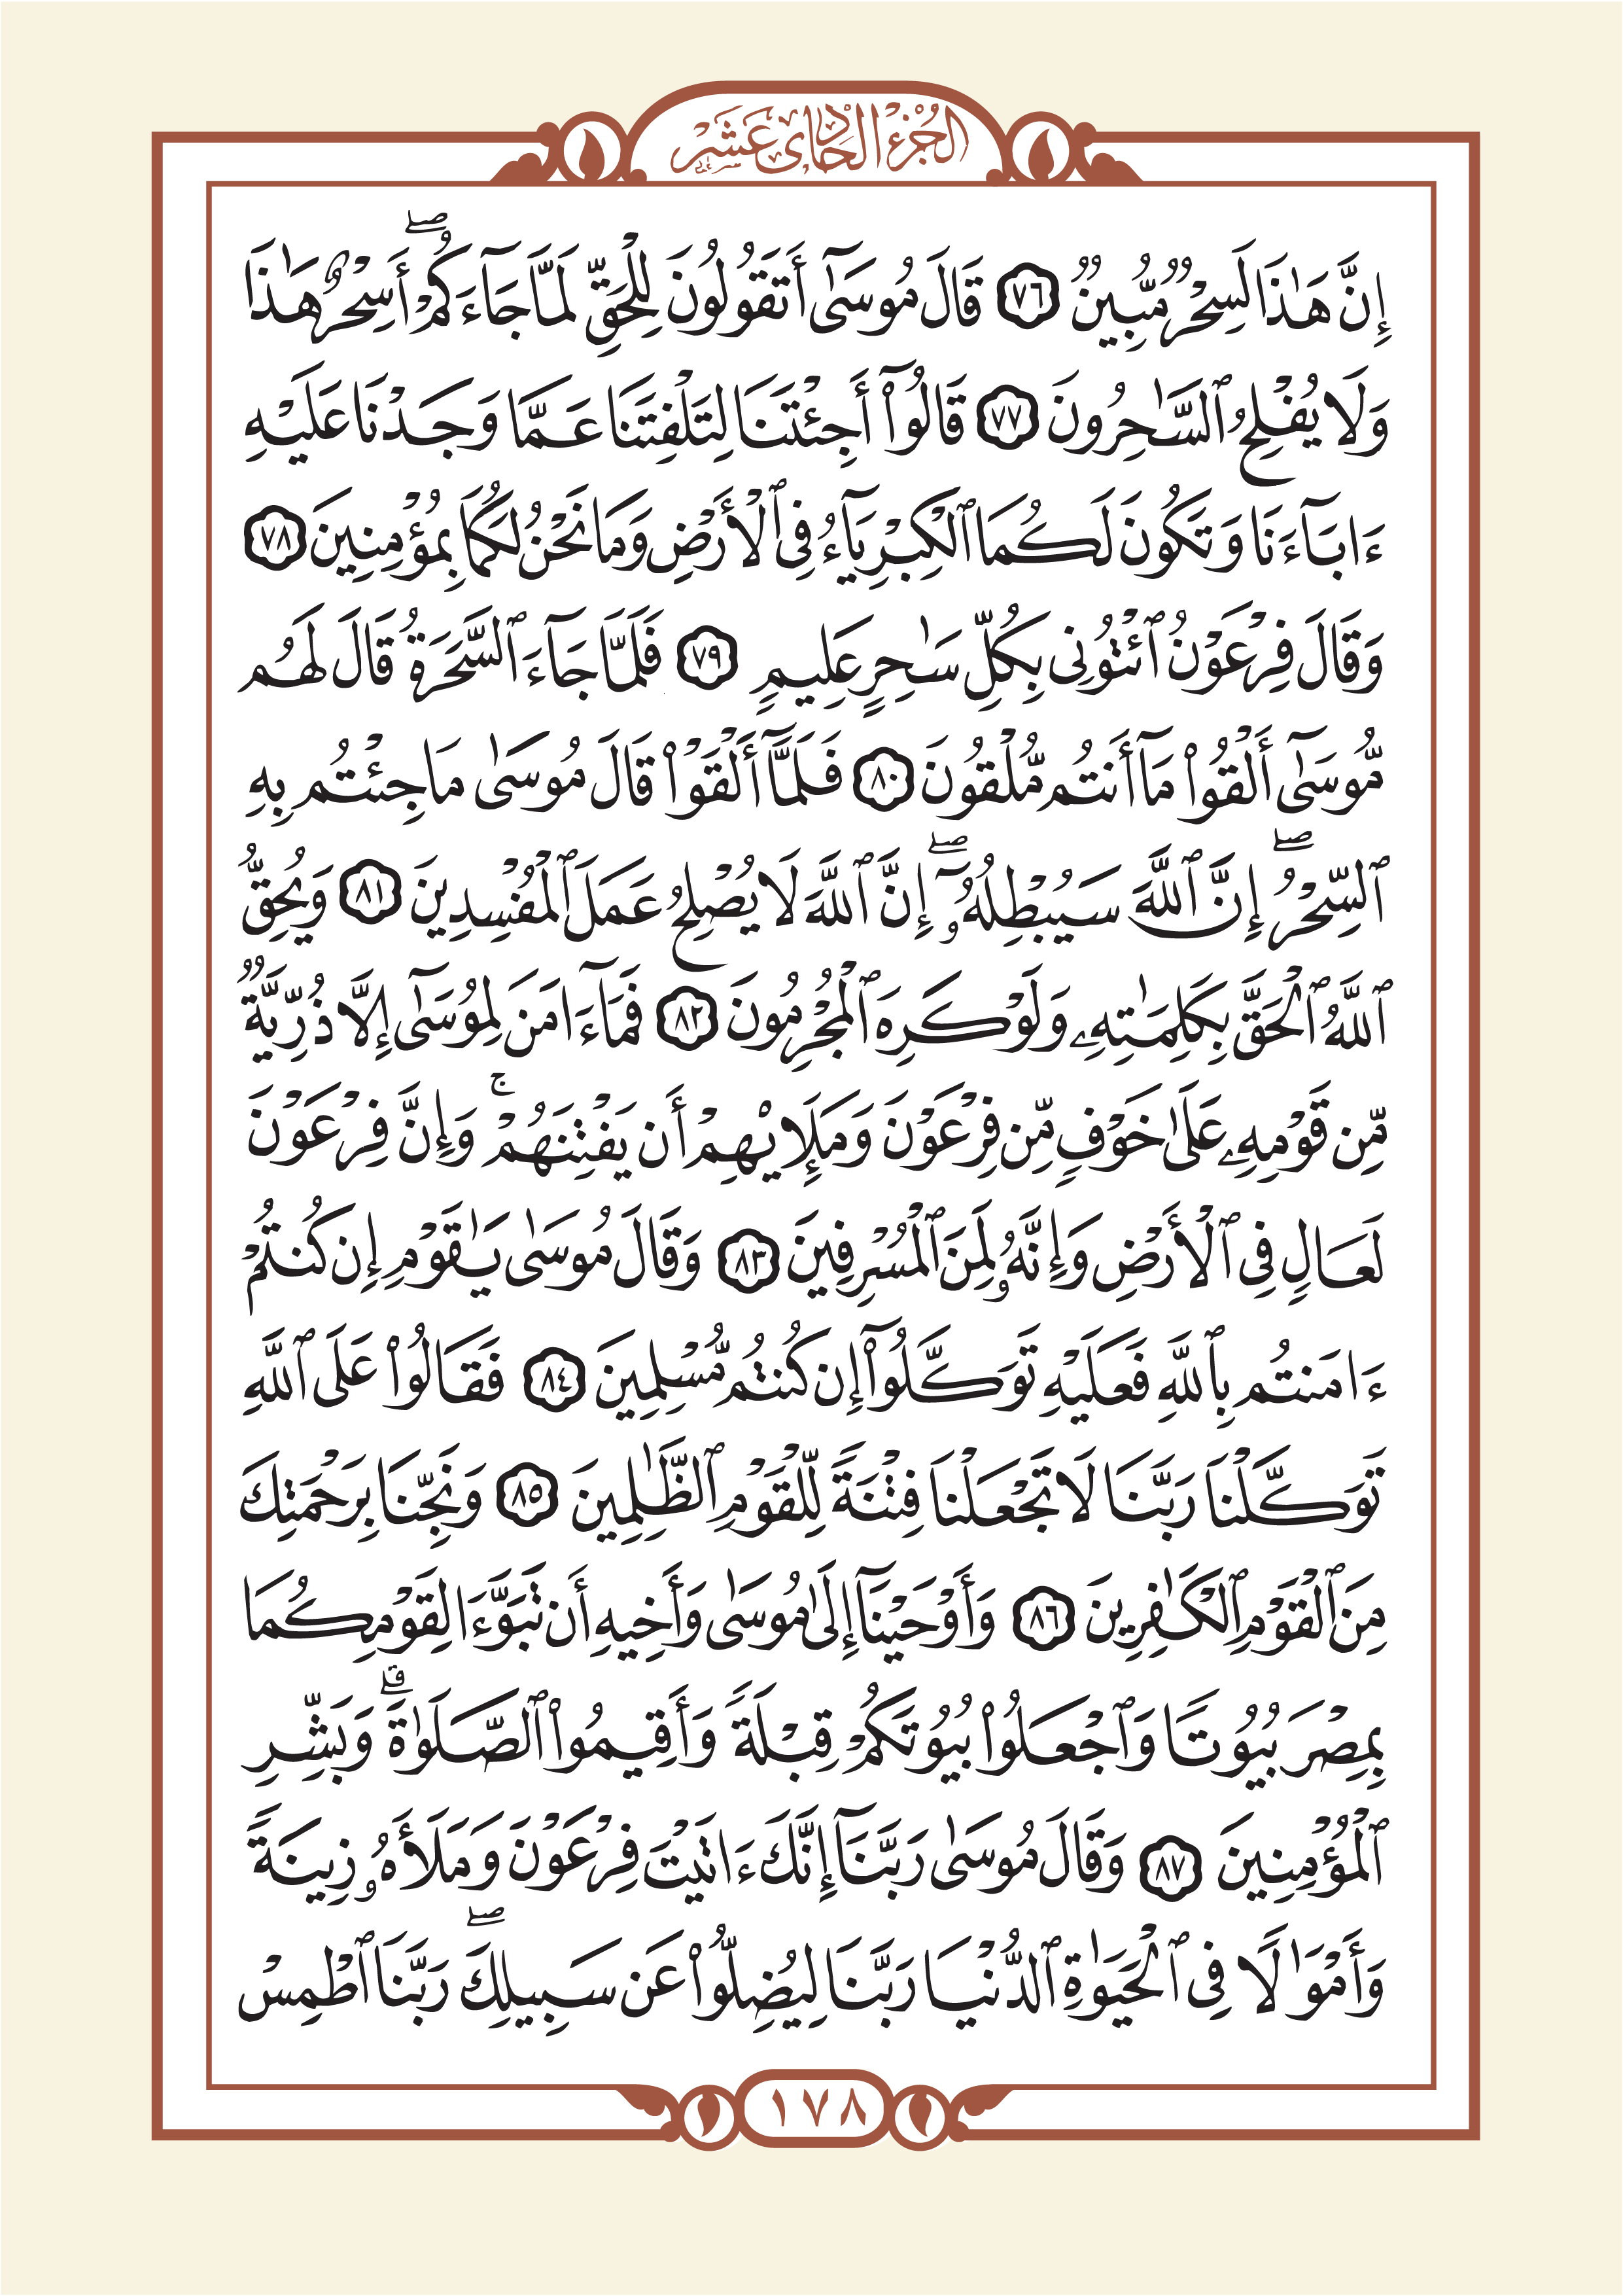 الجزء الحادي عشر
إِنَّ هَٰذَا لَسِحْرٌ مُّبِينٌ ٧٦ قَالَ مُوسَىٰٓ أَتَقُولُونَ لِلْحَقِّ لَمَّا جَآءَكُمْۖ أَسِحْرٌ هَٰذَا
وَلَا يُفْلِحُ ٱلسَّٰحِرُونَ ٧٧ قَالُوٓا۟ أَجِئْتَنَا لِتَلْفِتَنَا عَمَّا وَجَدْنَا عَلَيْهِ
ءَابَآءَنَا وَتَكُونَ لَكُمَا ٱلْكِبْرِيَآءُ فِى ٱلْأَرْضِ وَمَا نَحْنُ لَكُمَا بِمُؤْمِنِينَ ٧٨
وَقَالَ فِرْعَوْنُ ٱئْتُونِى بِكُلِّ سَٰحِرٍ عَلِيمٍ ٧٩ فَلَمَّا جَآءَ ٱلسَّحَرَةُ قَالَ لَهُم
مُّوسَىٰٓ أَلْقُوا۟ مَآ أَنتُم مُّلْقُونَ ٨٠ فَلَمَّآ أَلْقَوْا۟ قَالَ مُوسَىٰ مَا جِئْتُم بِهِ
ٱلسِّحْرُۖ إِنَّ ٱللَّهَ سَيُبْطِلُهُۥٓۖ إِنَّ ٱللَّهَ لَا يُصْلِحُ عَمَلَ ٱلْمُفْسِدِينَ ٨١ وَيُحِقُّ
ٱللَّهُ ٱلْحَقَّ بِكَلِمَٰتِهِۦ وَلَوْ كَرِهَ ٱلْمُجْرِمُونَ ٨٢ فَمَآ ءَامَنَ لِمُوسَىٰٓ إِلَّا ذُرِّيَّةٌ
مِّن قَوْمِهِۦ عَلَىٰ خَوْفٍ مِّن فِرْعَوْنَ وَمَلَإِي۟هِمْ أَن يَفْتِنَهُمْۚ وَإِنَّ فِرْعَوْنَ
لَعَالٍ فِى ٱلْأَرْضِ وَإِنَّهُۥ لَمِنَ ٱلْمُسْرِفِينَ ٨٣ وَقَالَ مُوسَىٰ يَٰقَوْمِ إِن كُنتُمْ
ءَامَنتُم بِٱللَّهِ فَعَلَيْهِ تَوَكَّلُوٓا۟ إِن كُنتُم مُّسْلِمِينَ ٨٤ فَقَالُوا۟ عَلَى ٱللَّهِ
تَوَكَّلْنَا رَبَّنَا لَا تَجْعَلْنَا فِتْنَةً لِّلْقَوْمِ ٱلظَّٰلِمِينَ ٨٥ وَنَجِّنَا بِرَحْمَتِكَ
مِنَ ٱلْقَوْمِ ٱلْكَٰفِرِينَ ٨٦ وَأَوْحَيْنَآ إِلَىٰ مُوسَىٰ وَأَخِيهِ أَن تَبَوَّءَا لِقَوْمِكُمَا
بِمِصْرَ بُيُوتًا وَٱجْعَلُوا۟ بُيُوتَكُمْ قِبْلَةً وَأَقِيمُوا۟ ٱلصَّلَوٰةَۗ وَبَشِّرِ
ٱلْمُؤْمِنِينَ ٨٧ وَقَالَ مُوسَىٰ رَبَّنَآ إِنَّكَ ءَاتَيْتَ فِرْعَوْنَ وَمَلَأَهُۥ زِينَةً
وَأَمْوَٰلًا فِى ٱلْحَيَوٰةِ ٱلدُّنْيَا رَبَّنَا لِيُضِلُّوا۟ عَن سَبِيلِكَۖ رَبَّنَا ٱطْمِسْ
١٧٨